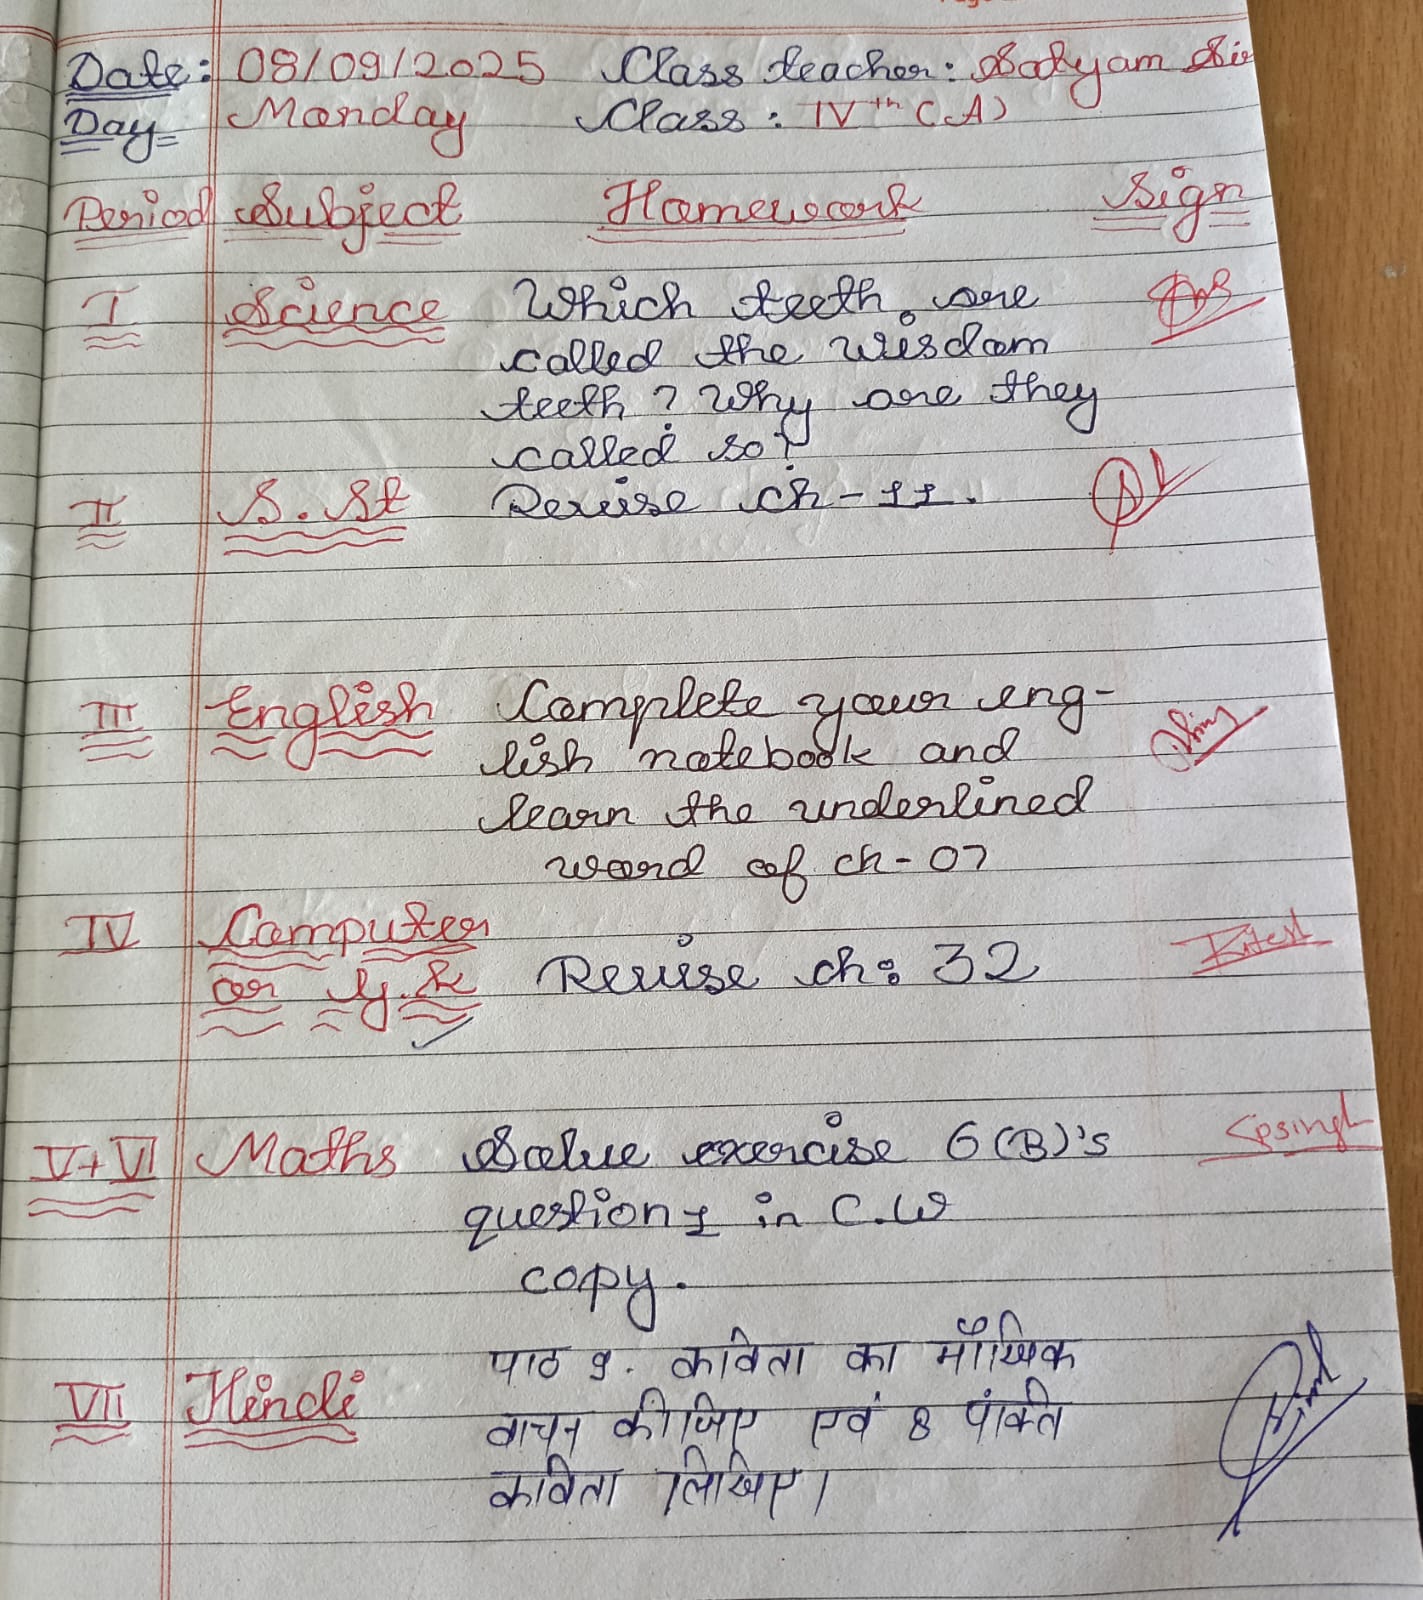 Date: 08/09/2025 Class teacher: Satyam Sir
Day Monday Class: IVth (A)
Period Subject Homework Sign
I Science Which teeth are
called the wisdom
teeth? Why are they
called so?
II S.St Revise ch-11.
III English Complete your eng-
lish notebook and
learn the underlined
word of ch-07
IV Computer
or G.K Revise ch: 32
V+VI Maths Solve exercise 6(B)'s
question 1 in C.W
copy.
VII Hindi पाठ 9. कविता का मौखिक
वाचन कीजिए एवं 8 पंक्ति
कविता लिखिए।